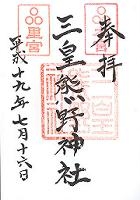 奉拝
三皇熊野神社
里宮
平成十九年七月十六日